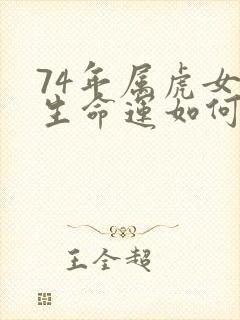 74年属虎女
生命运如何
王全超